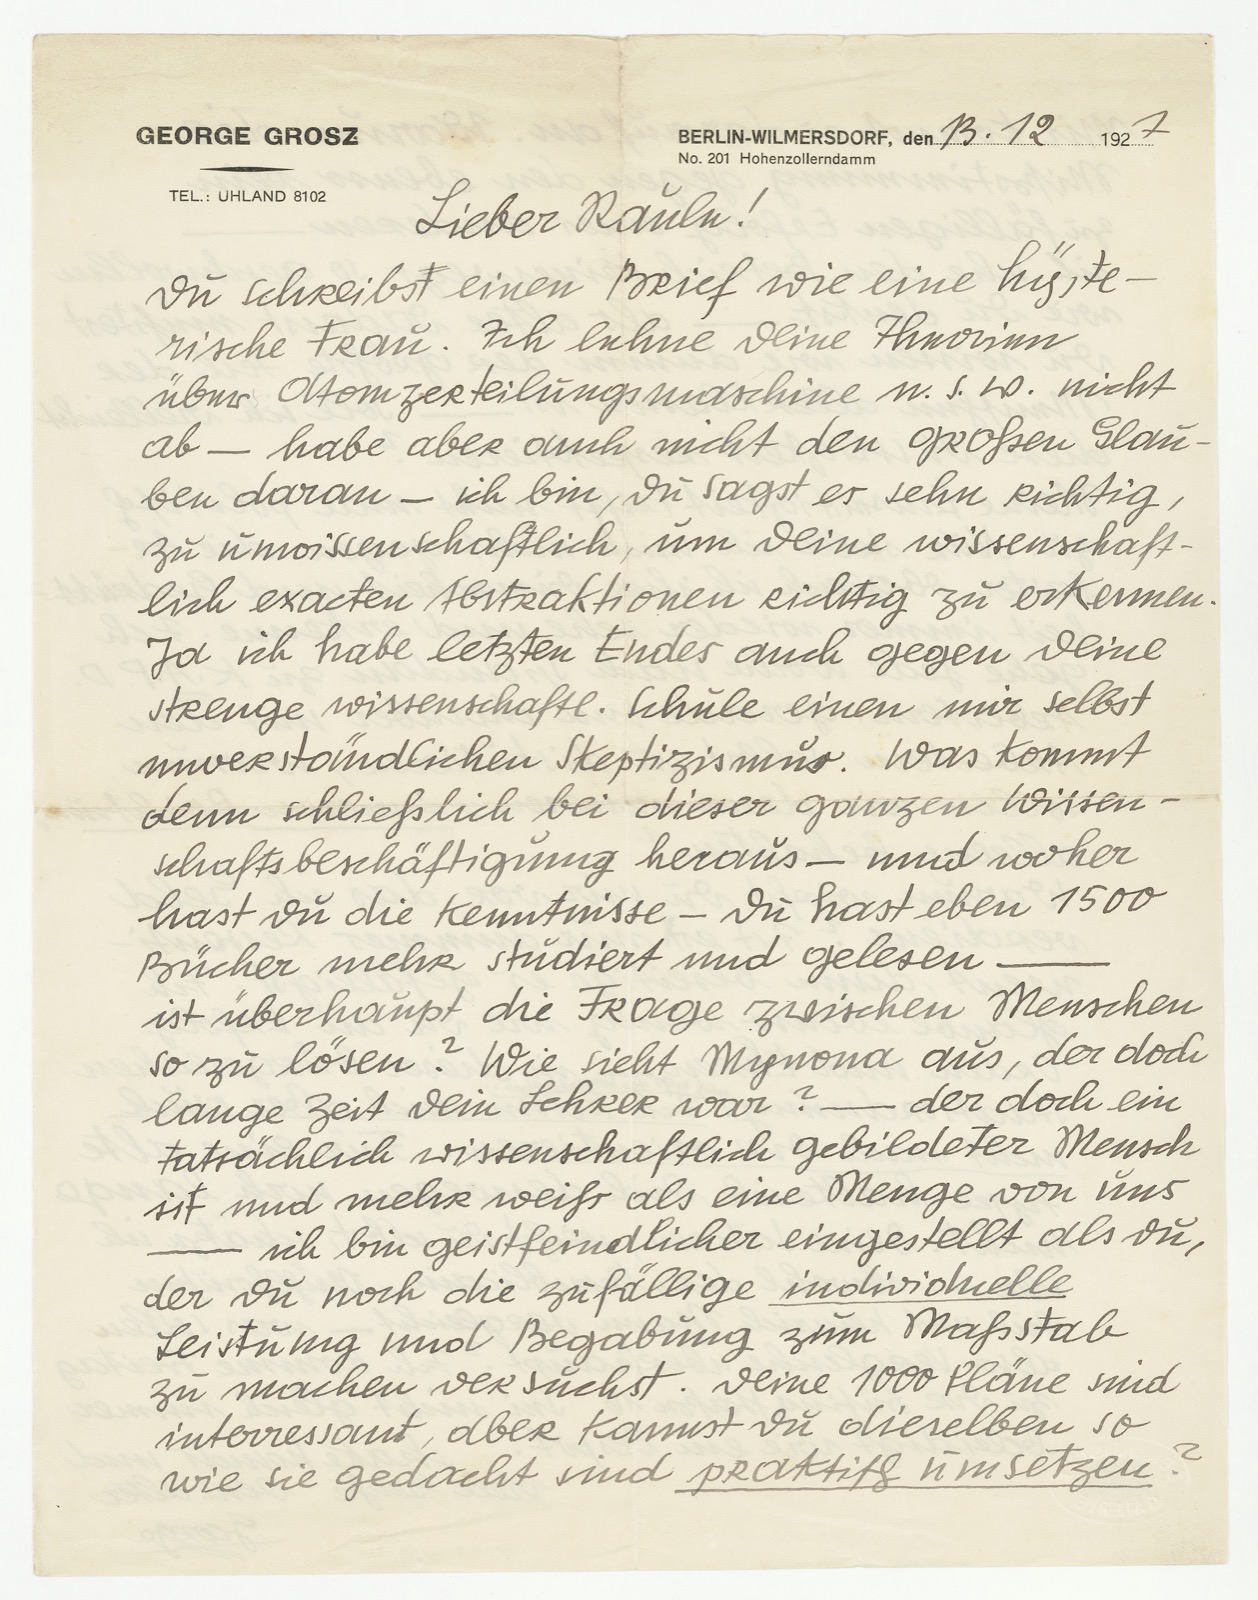 GEORGE GROSZ
TEL.: UHLAND 8102
BERLIN-WILMERSDORF, den 13. 12 1927
No. 201 Hohenzollerndamm
Lieber Rauln!
Du schreibst einen Brief wie eine hÿste-
rische Frau. Ich lehne Deine Theorien
über Atomzerteilungsmaschine u. s. w. nicht
ab — habe aber auch nicht den großen Glau-
ben daran — ich bin, Du sagst es sehr richtig,
zu unwissenschaftlich, um Deine wissenschaft-
lich exacten Abstraktionen richtig zu erkennen.
Ja ich habe letzten Endes auch gegen Deine
strenge wissenschaftl. Schule einen mir selbst
unverständlichen Skeptizismus. Was kommt
denn schließlich bei dieser ganzen Wissen-
schaftsbeschäftigung heraus — und woher
hast Du die Kenntnisse — Du hast eben 1500
Bücher mehr studiert und gelesen —
ist überhaupt die Frage zwischen Menschen
so zu lösen? Wie sieht Mynona aus, der doch
lange Zeit Dein Lehrer war? — der doch ein
tatsächlich wissenschaftlich gebildeter Mensch
ist und mehr weiß als eine Menge von uns
— ich bin geistfeindlicher eingestellt als Du,
der Du noch die zufällige individuelle
Leistung und Begabung zum Maßstab
zu machen versuchst. Deine 1000 Pläne sind
interressant, aber kannst Du dieselben so
wie sie gedacht sind praktisch umsetzen?